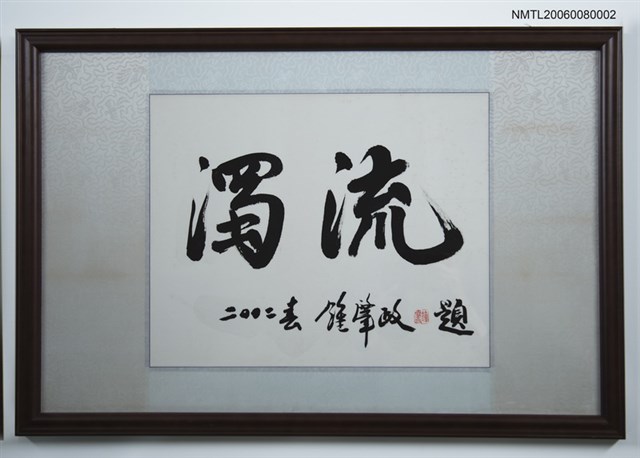 NMTL20060080002
濁流
二〇〇二春 鍾肇政 題